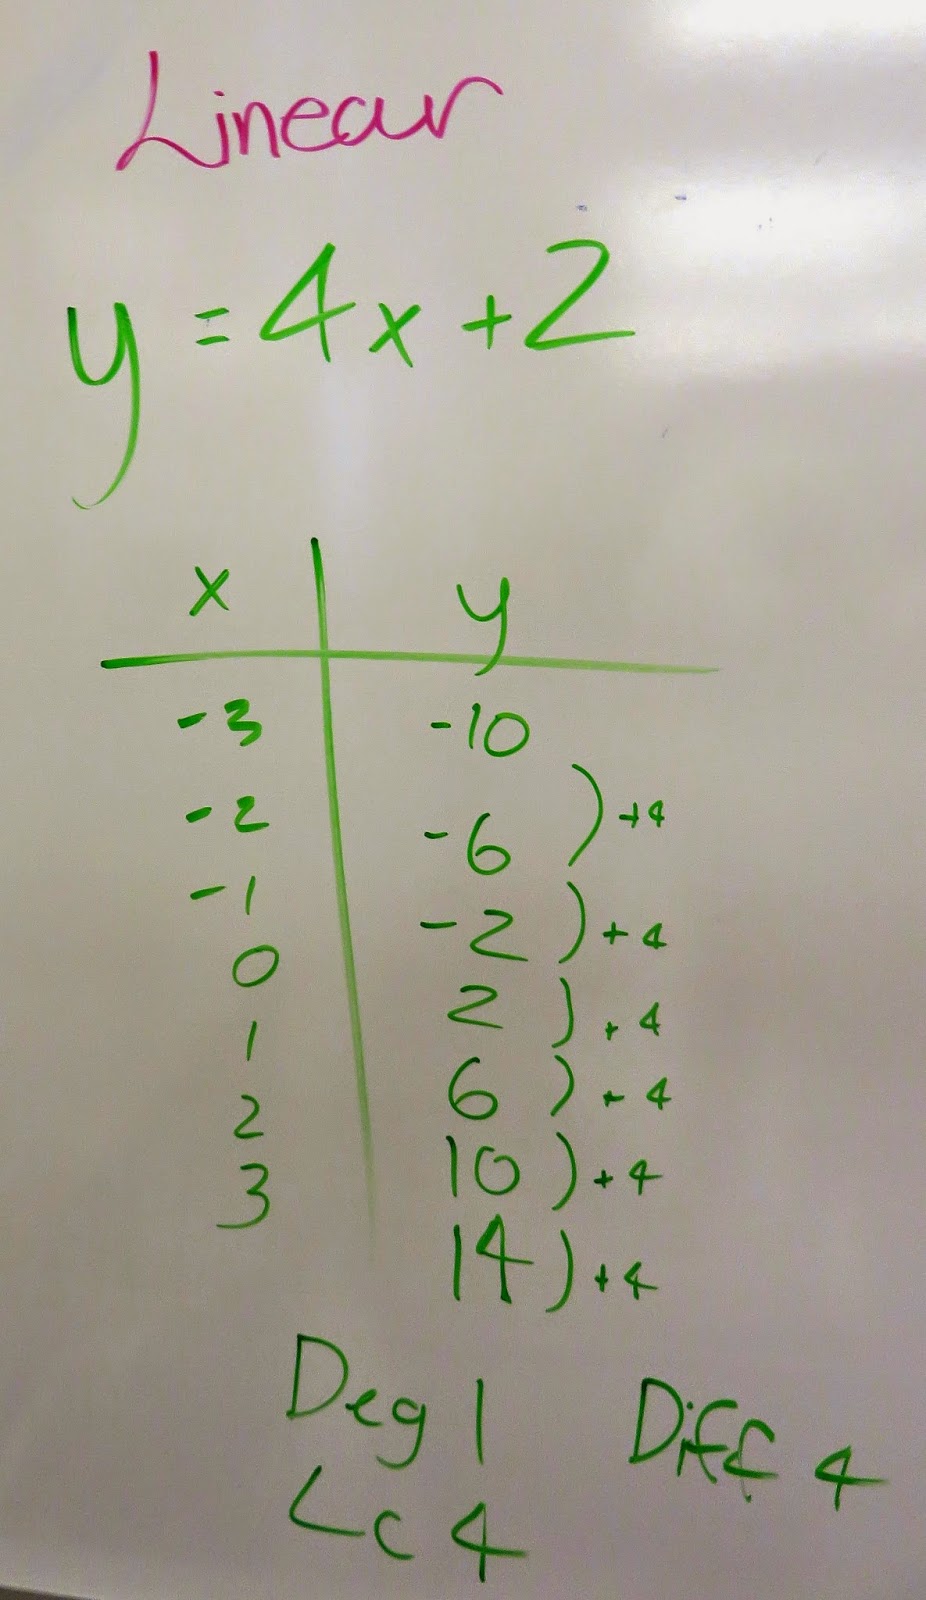 Linear
y = 4x + 2
x y
-3 -10
-2 -6 ) +4
-1 -2 ) +4
0 2 ) +4
1 6 ) +4
2 10 ) +4
3 14 ) +4
Deg 1 Diff 4
Lc 4